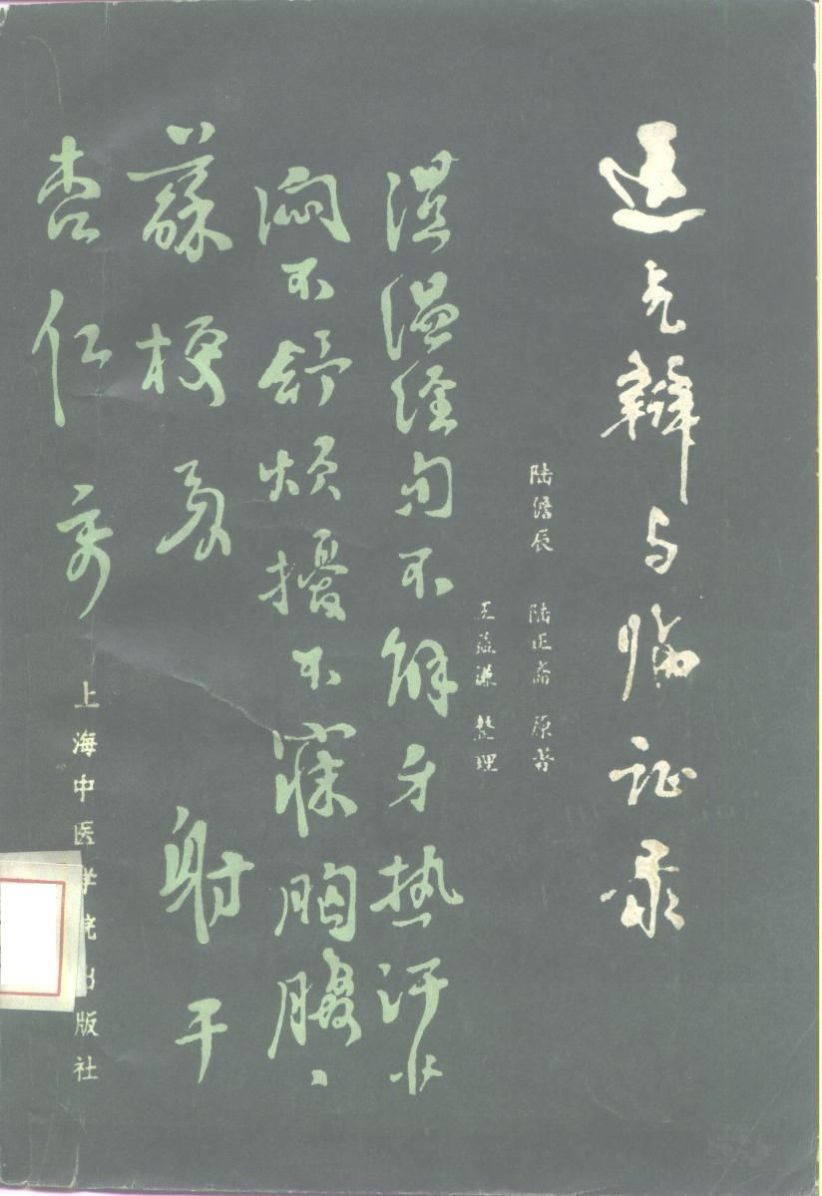 运气辩与临证录
陆儋辰 陆正斋 原著
王益谦 整理
湿温经旬不解身热汗少
闷不舒烦扰不寐胸腹
蘇梗 射干
杏仁
上海中医学院出版社